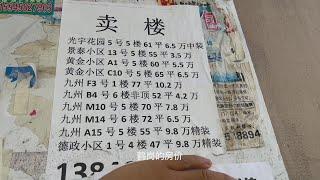 卖 楼
光宇花园 5 号 5 楼 61 平 6.5 万中装
景泰小区 13 号 5 楼 55 平 3.5 万
黄金小区 A1 号 5 楼 60 平 5.5 万
黄金小区 C10 号 5 楼 65 平 6.5 万
九州 F3 号 1 楼 77 平 10.2 万
九州 B4 号 6 楼非顶 52 平 4.2 万
九州 M10 号 5 楼 70 平 7.8 万
九州 M14 号 6 楼 72 平 6.5 万
九州 A15 号 5 楼 55 平 9.8 万精装
德政小区 1 号 4 楼 47 平 9.8 万精装
鹤岗的房价